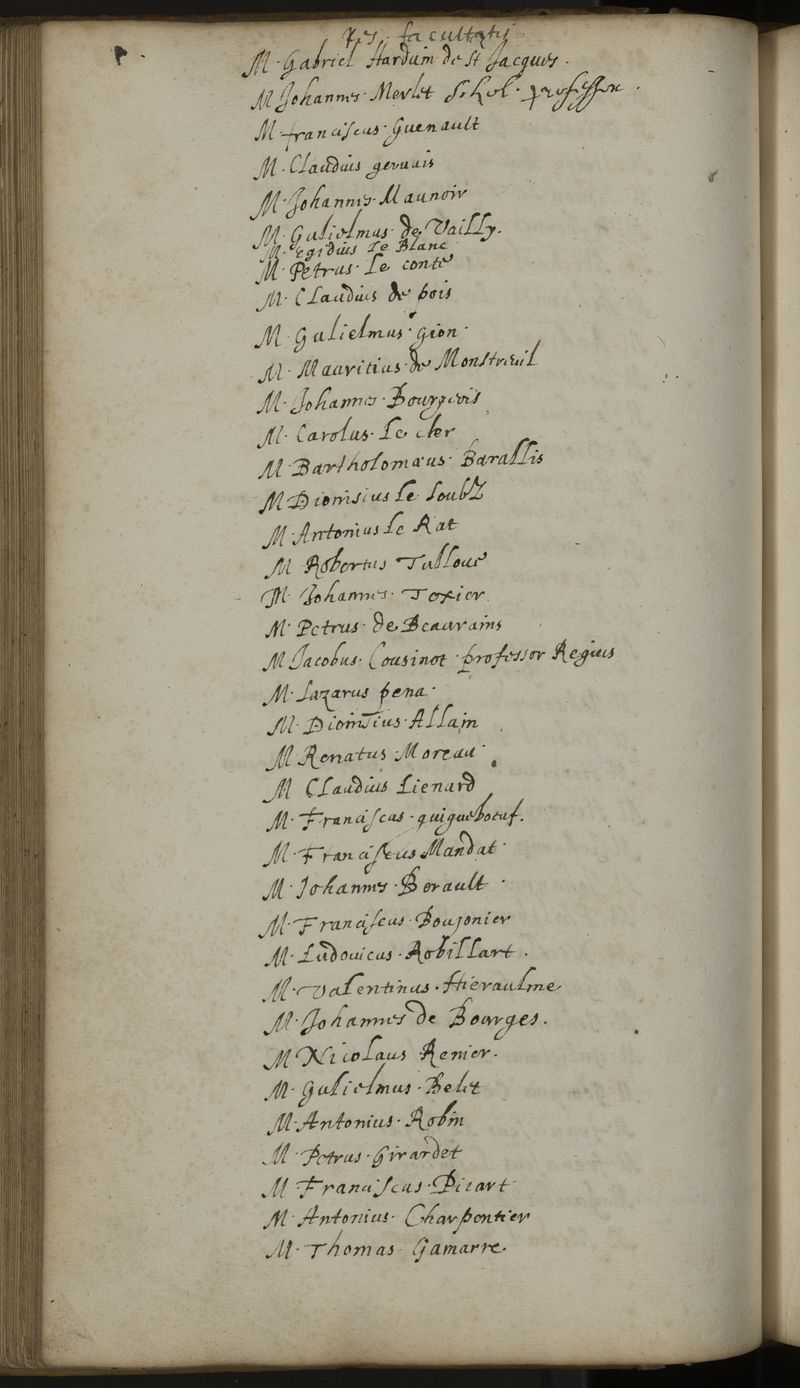 facultatis
M. Gabriel Harduin de St Jacques.
M Johannes Merlet Schol. professor.
M franciscus Guenault
M. Claudius geruais
M. Johannes Maunoir
M. Gulielmus de Vailly.
M. egidius Le Blanc
M. Petrus Le conte
M. Claudius de pois
M. Gulielmus gion.
M. Mauritius de Monstreuil
M. Johannes Bourgeois
M. Carolus Le cler
M Bartholomæus Barallis
M Dionisius le soubz
M. Antonius le Rat
M Robertus Tulloue
M. Johannes Texier.
M. Petrus de Beauvains
M Jacobus. Cousinot professor Regius
M. Lazarus pena.
M. Dionisius Allain
M Renatus Moreau
M Claudius Lienard
M. Franciscus quiqueboeuf.
M. Franciscus Mandat.
M. Johannes Berault.
M. Franciscus Boujonier
M. Ludouicus Robillart.
M. Valentinus Hieraulme
M. Johannes de Bourges.
M Nicolaus Renier.
M. Gulielmus Belet
M. Antonius Robin
M. Petrus Girardet
M Franciscus Picart
M. Antonius Charpentier
M. Thomas Gamarre.